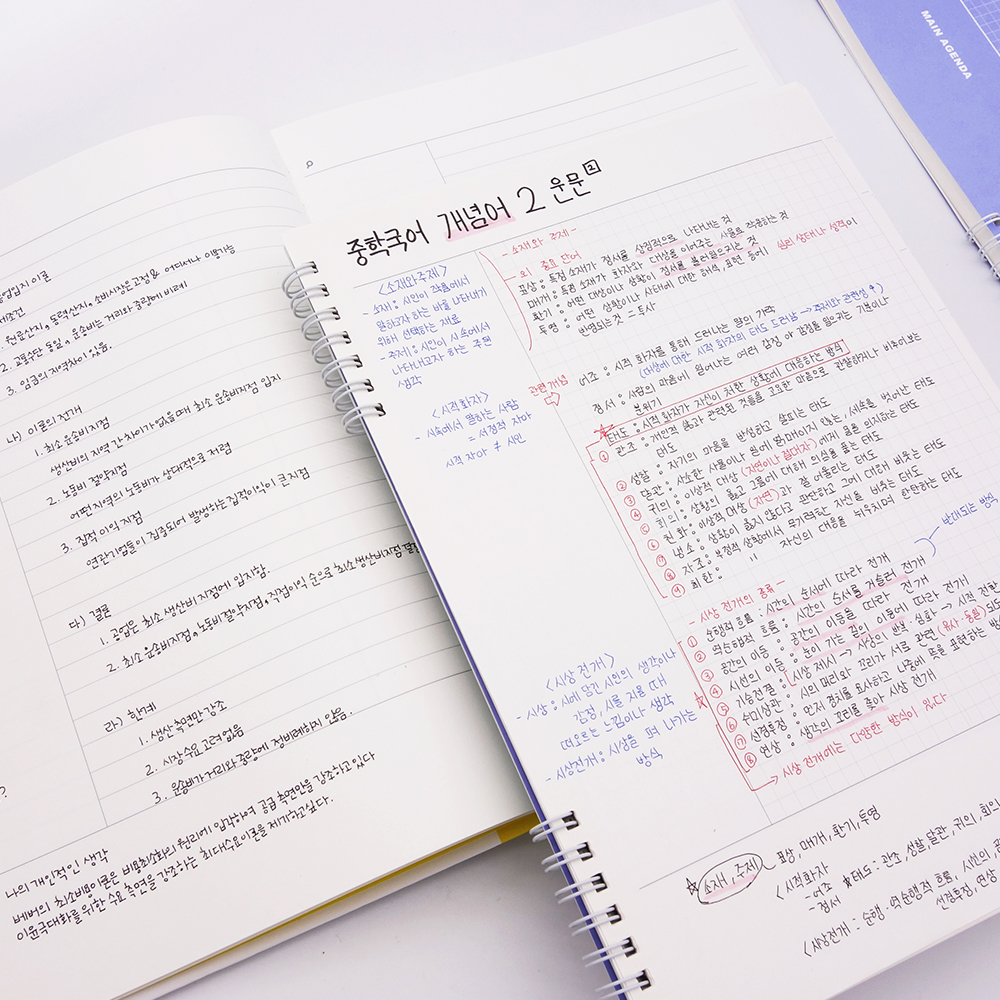 MAIN AGENDA
공업입지 이론
원료산지, 동력산지, 소비시장은 고정 & 어디서나 이용가능
2. 교통수단 동일, 운송비는 거리와 중량에 비례
3. 임금의 지역차이 있음.
나) 이론의 전개
1. 최소 운송비 지점
생산비의 지역 간 차이가 없을 때 최소 운송비지점 입지
2. 노동비 절약지점
어떤 지역의 노동비가 상대적으로 저렴
3. 집적 이익 지점
연관기업들이 집중되어 발생하는 집적이익이 큰 지점
다) 결론
1. 공업은 최소 생산비 지점에 입지함.
2. 최소 운송비지점, 노동비절약지점, 직접이익 순으로 최소생산비지점 결정
라) 한계
1. 생산 측면만 강조
2. 시장 수요 고려 없음
3. 운송비가 거리와 중량에 정비례하지 않음.
나의 개인적인 생각
베버의 최소비용이론은 비용최소화의 원리에 입각하여 공급 측면만을 강조하고 있다
이윤극대화를 위한 수요 측면을 강조하는 최대수요이론을 제기하고싶다.
중학국어 개념어 2 운문 2
<소재와 주제>
- 소재 : 시인이 작품에서
말하고자 하는 바를 나타내기
위해 선택하는 재료
- 주제 : 시인이 시 속에서
나타내고자 하는 주된
생각
<시적화자>
- 시 속에서 말하는 사람
= 서정적 자아
시적 자아 ≠ 시인
<시상 전개>
- 시상 : 시에 담긴 시인의 생각이나
감정, 시를 지을 때
떠오르는 느낌이나 생각
- 시상전개 : 시상을 펴 나가는
방식
- 소재와 주제 -
의 중요 단어
표상 : 특정 소재가 정서를 상징적으로 나타내는 것
매개 : 특정 소재가 화자와 대상을 이어주는 사물로 작용하는 것
환기 : 어떤 대상이나 상황이 정서를 불러일으키는 것
투영 : 어떤 상황이나 사태에 대한 해석, 표현 등에 심리 상태나 성격이
반영되는 것 = 투사
관련 개념
어조 : 시적 화자를 통해 드러나는 말의 가락
(대상에 대한 시적 화자의 태도 드러남 → 주제와 관련성 ↑)
정서 : 사람의 마음에 일어나는 여러 감정 or 감정을 일으키는 기분이나
분위기
태도 : 시적 화자가 자신이 처한 상황에 대응하는 방식
① 관조 : 개인적 삶과 관련된 것들을 고요한 마음으로 관찰하거나 비추어보는
태도
② 성찰 : 자기의 마음을 반성하고 살피는 태도
③ 달관 : 사소한 사물이나 일에 얽매이지 않는, 세속을 벗어난 태도
④ 귀의 : 이상적 대상 (자연이나 절대자)에게 몸을 의지하는 태도
⑤ 회의 : 상황의 옳고 그름에 대해 의심을 품는 태도
⑥ 친화 : 이상적 대상 (자연)과 잘 어울리는 태도
⑦ 냉소 : 상황이 옳지 않다고 판단하고 그에 대해 비웃는 태도
⑧ 자조 : 부정적 상황에서 무기력한 자신을 비웃는 태도
⑨ 회한 : 〃 자신의 대응을 뉘우치며 한탄하는 태도
- 시상 전개의 종류 -
① 순행적 흐름 : 시간의 순서에 따라 전개
반대되는 방식
② 역순행적 흐름 : 시간의 순서를 거슬러 전개
③ 공간의 이동 : 공간의 이동을 따라 전개
④ 시선의 이동 : 눈이 가는 길의 이동에 따라 전개
⑤ 기승전결 : 시상 제시 → 시상의 반복·심화 → 시적 전환
⑥ 수미상관 : 시의 머리와 꼬리가 서로 관련 (유사·동일) 되도
⑦ 선경후정 : 먼저 경치를 묘사하고 나중에 뜻을 표현하는 방
⑧ 연상 : 생각의 꼬리를 좇아 시상 전개
→ 시상 전개에는 다양한 방식이 있다
소재, 주제 - 표상, 매개, 환기, 투영
<시적화자
- 어조 ★태도 : 관조, 성찰, 달관, 귀의, 회의
- 정서
<시상전개 : 순행·역순행적 흐름, 시선의, 공
선경후정, 연상